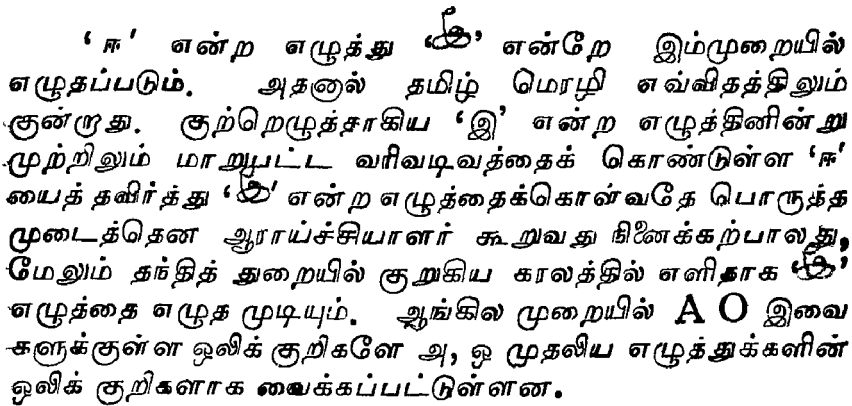 ‘ ஈ’ என்ற எழுத்து ‘இீ’ என்றே இம்முறையில்
எழுதப்படும். அதனால் தமிழ் மொழி எவ்விதத்திலும்
குன்றாது. குற்றெழுத்தாகிய ‘இ’ என்ற எழுத்தினின்று
முற்றிலும் மாறுபட்ட வரிவடிவத்தைக் கொண்டுள்ள ‘ஈ’
யைத் தவிர்த்து ‘இீ’ என்ற எழுத்தைக்கொள்வதே பொருந்த
முடைத்தென ஆராய்ச்சியாளர் கூறுவது நினைக்கற்பாலது,
மேலும் தந்தித் துறையில் குறுகிய காலத்தில் எளிதாக ‘இீ’
எழுத்தை எழுத முடியும். ஆங்கில முறையில் A O இவை
களுக்குள்ள ஒலிக் குறிகளே அ, ஒ முதலிய எழுத்துக்களின்
ஒலிக் குறிகளாக வைக்கப்பட்டுள்ளன.